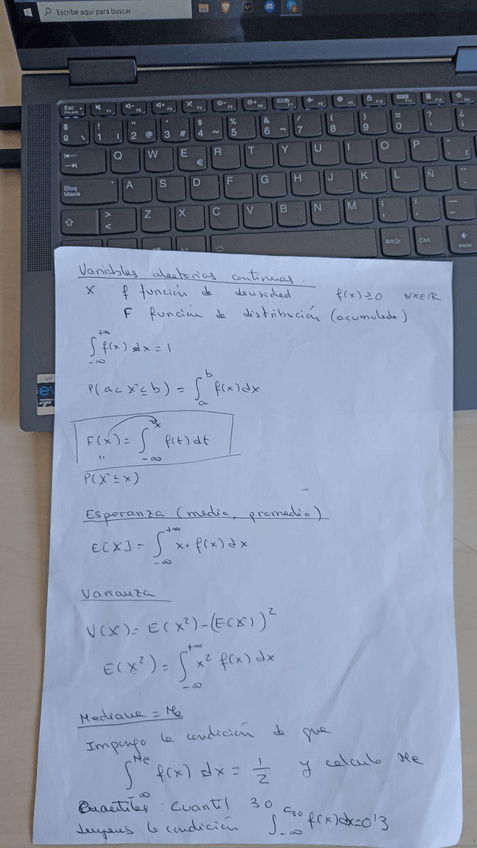 Escribe aquí para buscar
Esc
Q W E R T Y U I O P
€
Bloq Mayús A S D F G H J K L Ñ
Z X C V B N M
AltGr Ctrl
Variables aleatorias continuas.
X f función de densidad f(x) ≥ 0 ∀x∈ℝ
F función de distribución (acumulada)
∫_{-∞}^{+∞} f(x) dx = 1
P(a < X ≤ b) = ∫_a^b f(x) dx
F(x) = ∫_{-∞}^x f(t) dt
"
P(X ≤ x)
Esperanza (media, promedio)
E[X] = ∫_{-∞}^{+∞} x · f(x) dx
Varianza
V(X) = E(X²) - (E(X))²
E(X²) = ∫_{-∞}^{+∞} x² f(x) dx
Mediana = Me
Impongo la condición de que
∫_{-∞}^{Me} f(x) dx = 1/2 y calculo Me
Cuantiles: Cuantil 30
la condición ∫_{-∞}^{C30} f(x) dx = 0'3